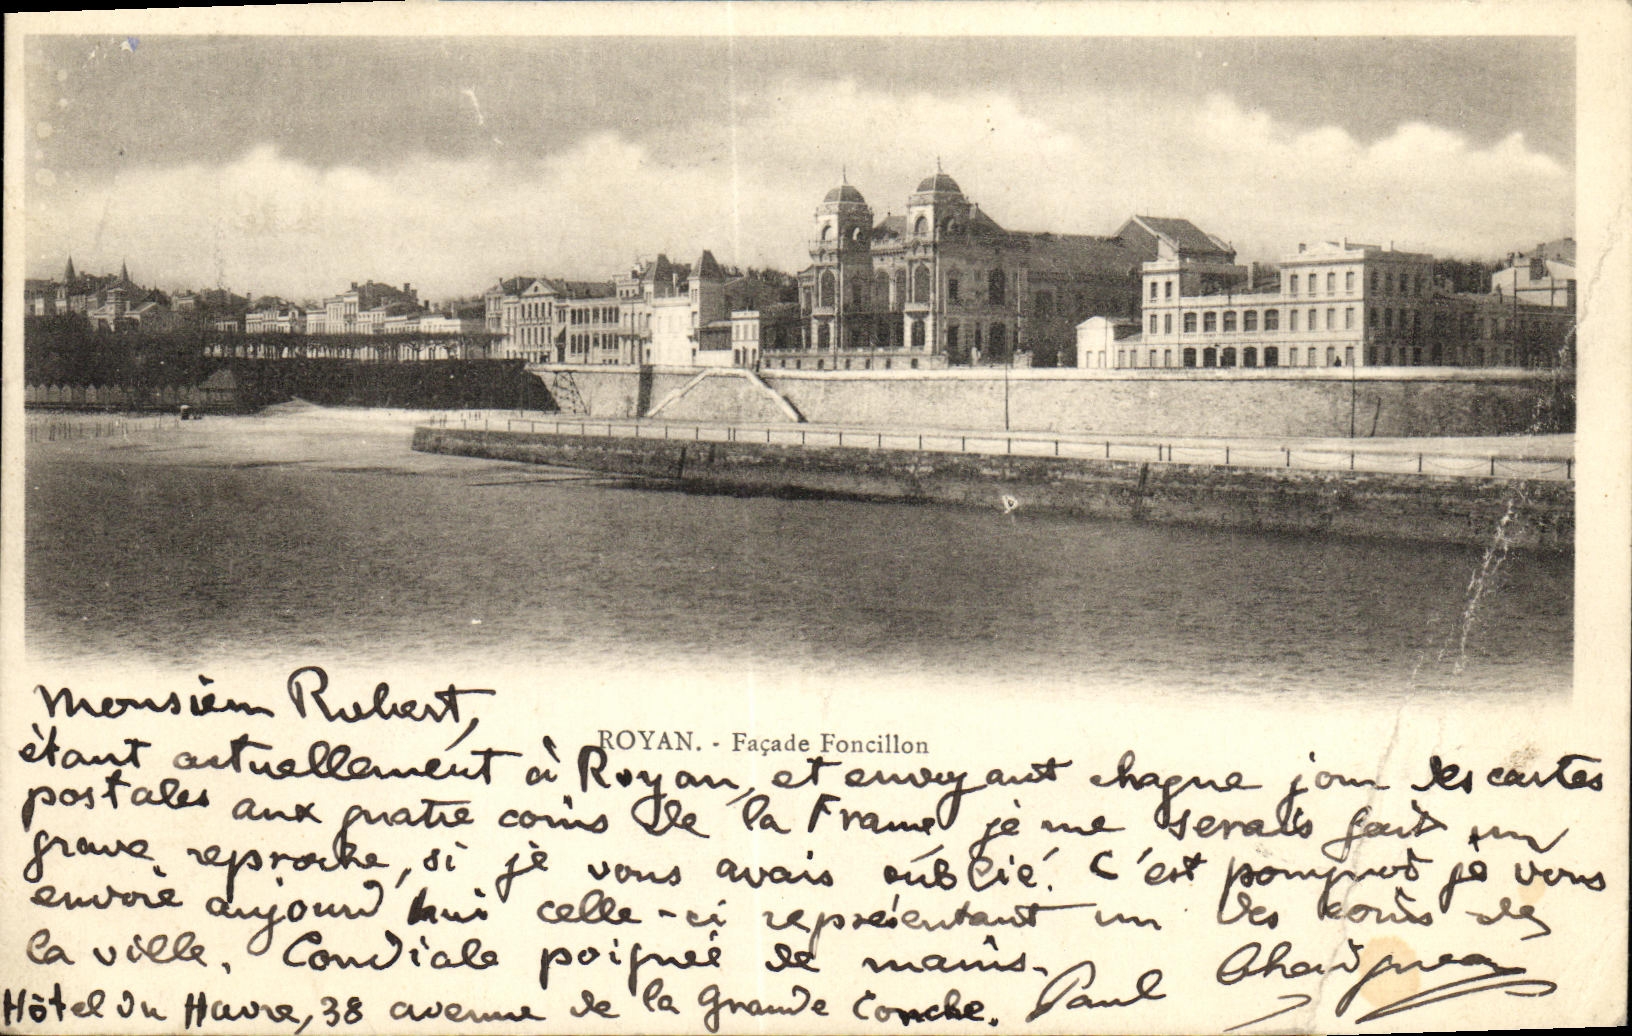 Monsieur Robert,
ROYAN. - Façade Foncillon
étant actuellement à Royan, et envoyant chaque jour des cartes
postales aux quatre coins de la France, je me serais fait un
grave reproche, si je vous avais oublié. C'est pourquoi je vous
envoie aujourd'hui celle-ci représentant un des coins de
la ville. Cordiale poignée de mains.
Paul
Hôtel du Havre, 38 avenue de la Grande Conche.